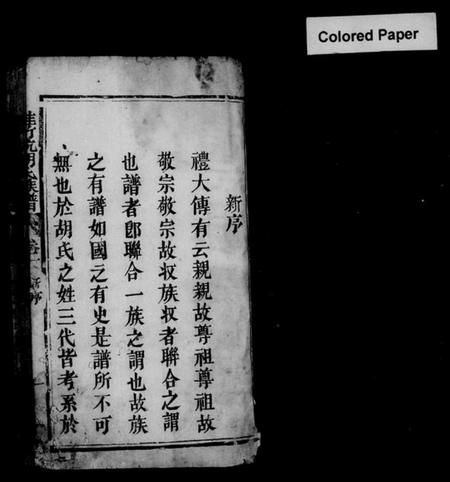 Colored Paper
新序
禮大傳有云親親故尊祖尊祖故
敬宗敬宗故収族収者聯合之謂
也譜者卽聯合一族之謂也故族
之有譜如國之有史是譜所不可
無也於胡氏之姓三代皆考系於
胡氏族譜 卷 新序